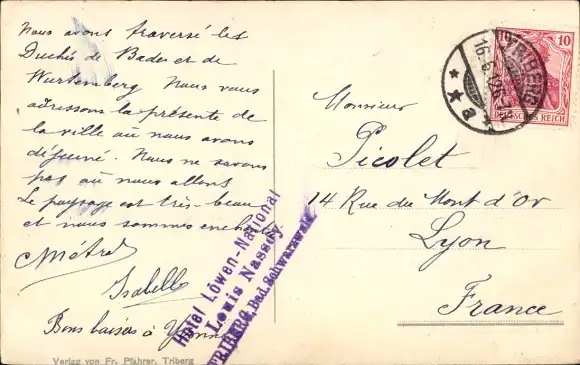 Nous avons traversé les
Duchés de Bades et de
Wurtemberg Nous vous
adressons la présente de
la ville où nous avons
déjeuné. Nous ne savons
pas où nous allons
Le paysage est très beau
et nous sommes
Métral
Isabelle
Bons baisers à
Verlag von Fr. Pfahrer, Triberg
Hotel Löwen-National
Louis Nassoy
TRIBERG, Bad. Schwarzwald
TRIBERG
16.6.12
* * a *
10
DEUTSCHES REICH
Monsieur
Picolet
14 Rue du Mont d'Or
Lyon
France